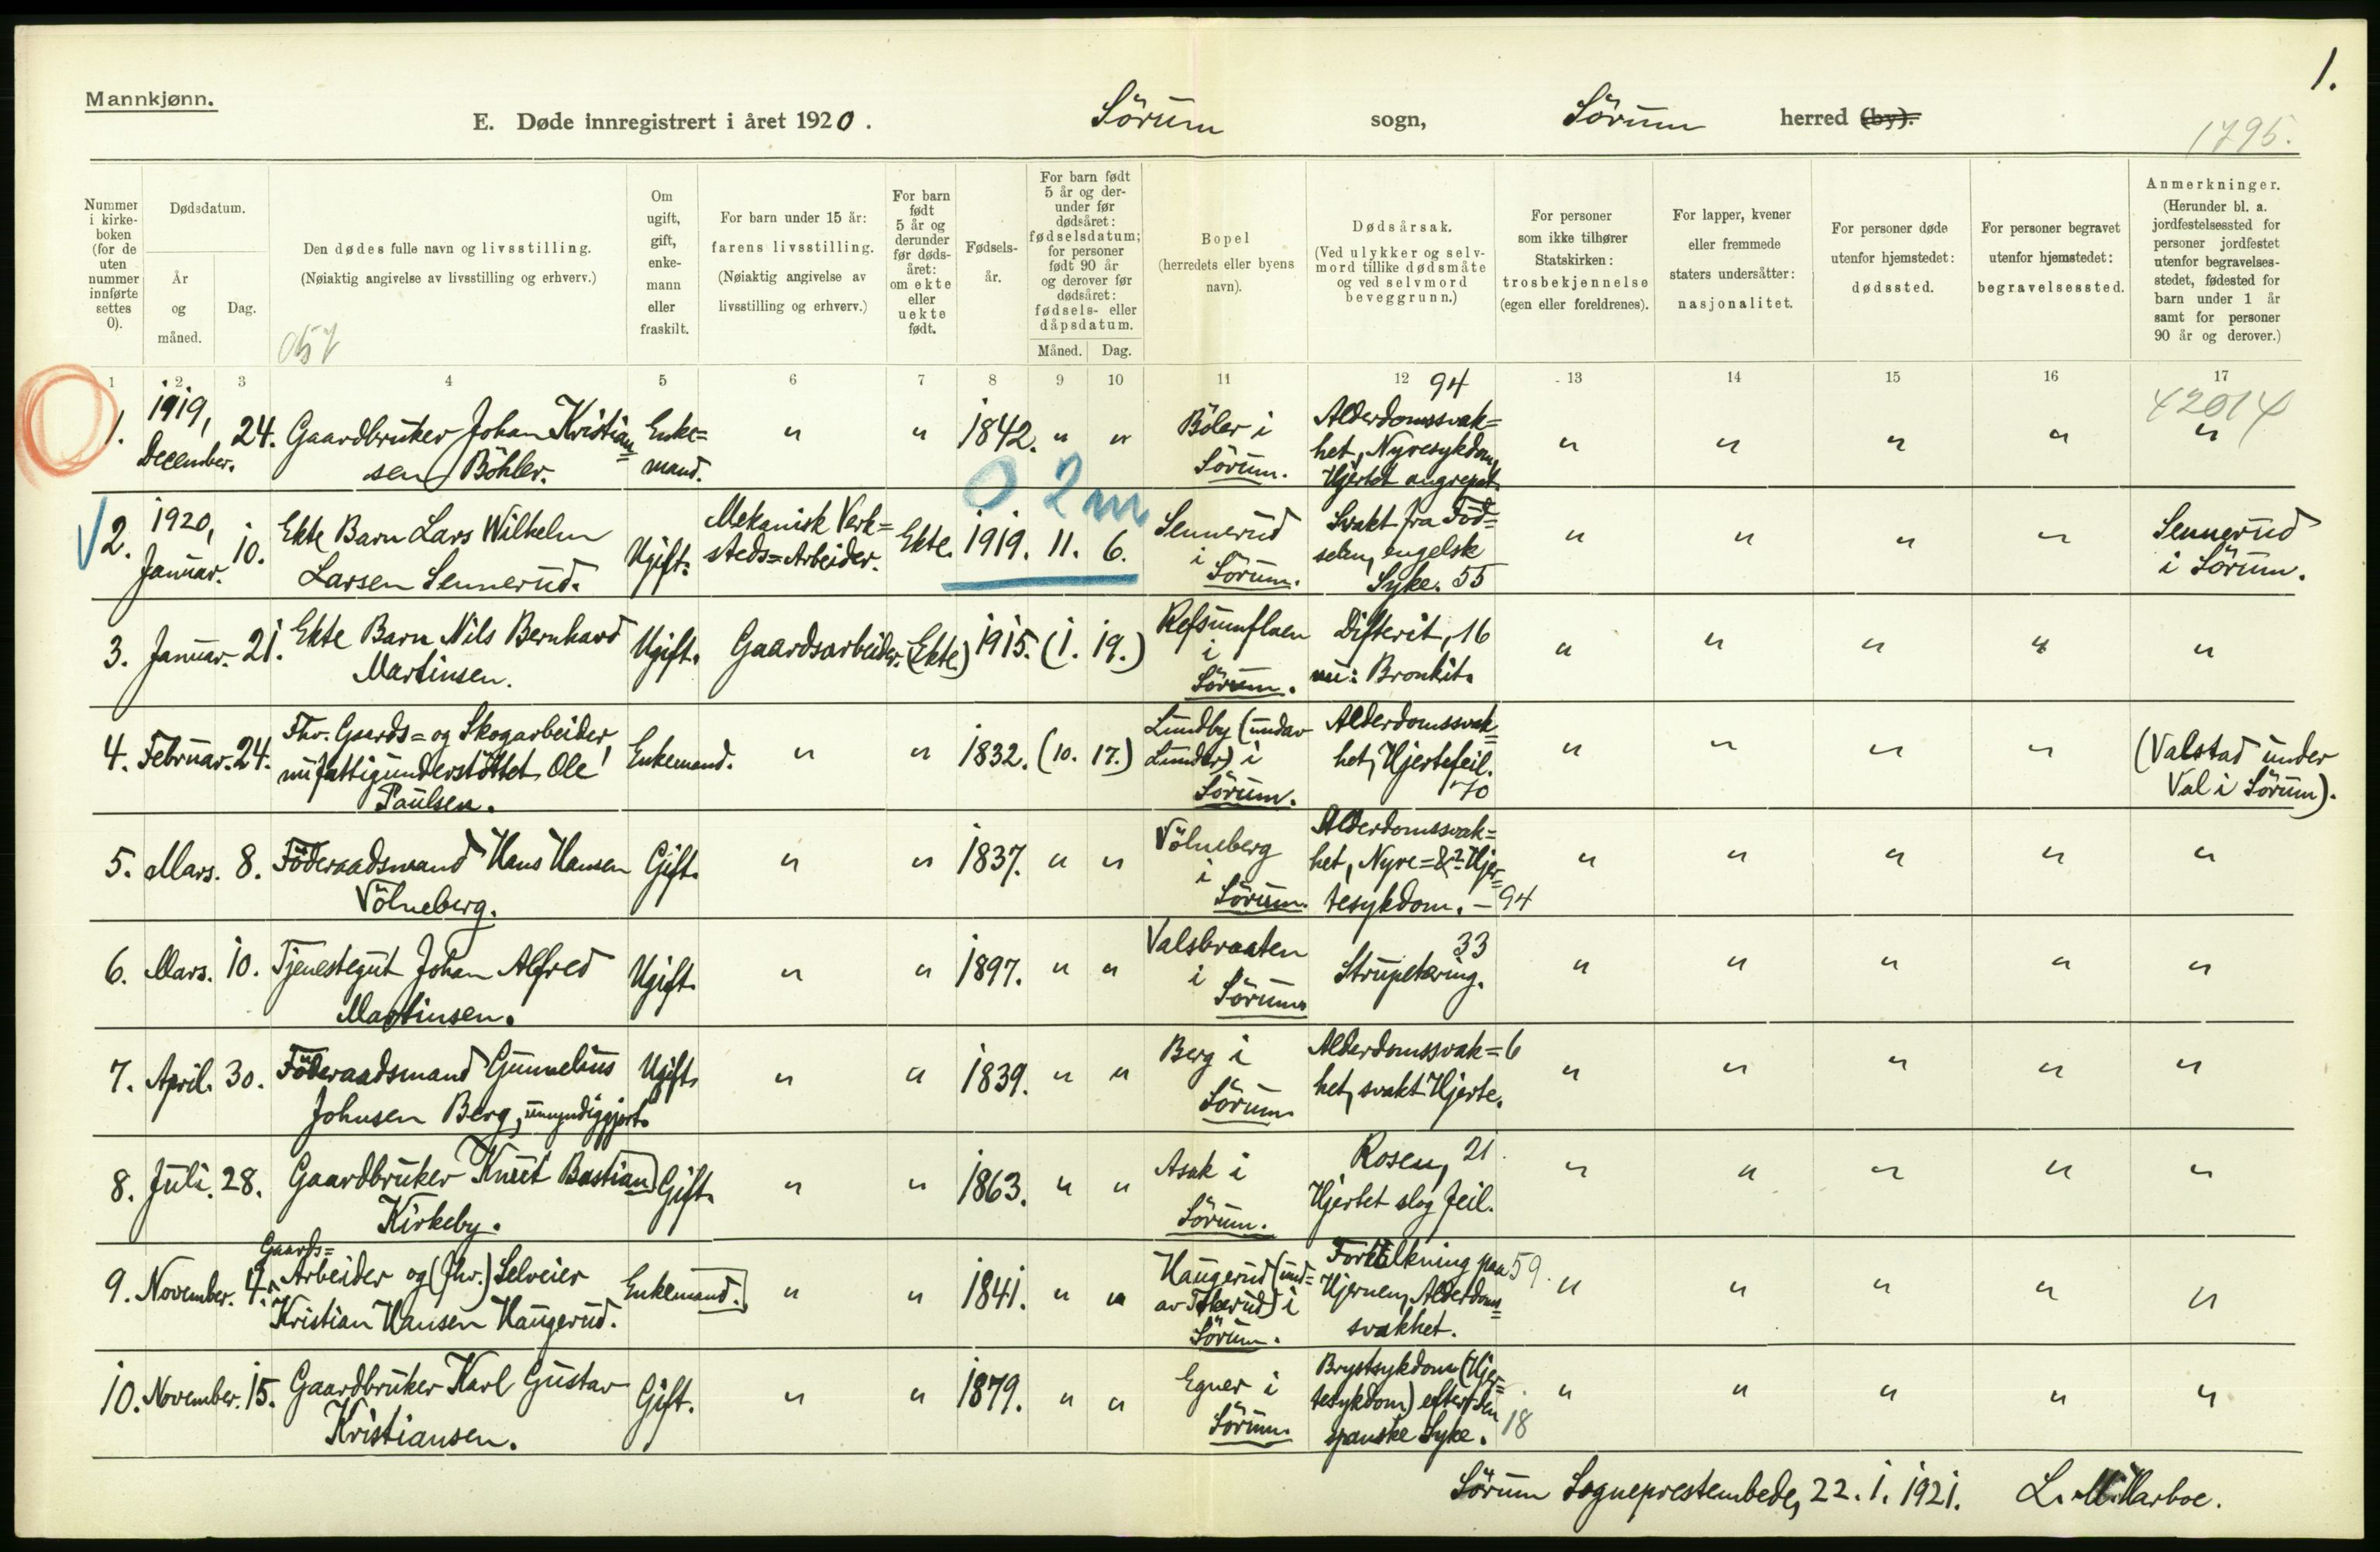 1.
Mannkjønn.
E. Døde innregistrert i året 1920. Sörum sogn, Sörum herred (by).
1795.
Nummer i kirke-boken (for de uten nummer innførte settes 0).
Dødsdatum.
År og måned.
Dag.
Den dødes fulle navn og livsstilling.
(Nøiaktig angivelse av livsstilling og erhverv.)
Om ugift, gift, enke-mann eller fraskilt.
For barn under 15 år: farens livsstilling.
(Nøiaktig angivelse av livsstilling og erhverv.)
For barn født 5 år og derunder før døds-året: om ekte eller uekte født.
Fødsels-år.
For barn født 5 år og der-under før dødsåret: fødselsdatum; for personer født 90 år og derover før dødsåret: fødsels- eller dåpsdatum.
Måned. Dag.
Bopel (herredets eller byens navn).
Dødsårsak.
(Ved ulykker og selv-mord tillike dødsmåte og ved selvmord beveggrunn.)
For personer som ikke tilhører Statskirken: trosbekjennelse (egen eller foreldrenes).
For lapper, kvener eller fremmede staters undersåtter: nasjonalitet.
For personer døde utenfor hjemstedet: dødssted.
For personer begravet utenfor hjemstedet: begravelsessted.
Anmerkninger.
(Herunder bl. a. jordfestelsessted for personer jordfestet utenfor begravelses-stedet, fødested for barn under 1 år samt for personer 90 år og derover.)
1 2 3 4 5 6 7 8 9 10 11 12 13 14 15 16 17
94
42014
1. 1919, December. 24. Gaardbruker Johan Kristian= sen Böhler. Enke= mand. " " 1842. " " Böler i Sörum. Alderdomssvak= het, Nyresykdom, Hjertet angrepet. " " " " "
0 2m
2. 1920, Januar. 10. Ekte Barn Lars Wilhelm Larsen Sennerud. Ugift. Mekanisk Verk= steds=Arbeider. Ekte. 1919. 11. 6. Sennerud i Sörum. Svakt fra Föd= selen, engelsk Syke. 55 " " " " Sennerud i Sörum.
3. Januar. 21. Ekte Barn Nils Bernhard Martinsen. Ugift. Gaardsarbeider. (Ekte) 1915. (1. 19.) Refsumfloen i Sörum. Difterit, 16 nu: Bronkit. " " " " "
4. Februar. 24. Fhv. Gaards= og Skogarbeider, nu fattigunderstöttet Ole Paulsen. Enkemand. " " 1832. (10. 17.) Lundby (undav Lunder) i Sörum. Alderdomssvak= het, Hjertefeil. 70 " " " " (Valstad under Val i Sörum).
5. Mars. 8. Föderaadsmand Hans Hansen Völneberg. Gift. " " 1837. " " Völneberg i Sörum. Alderdomssvak= het, Nyre= & Hjer= tesykdom. – 94 " " " " "
6. Mars. 10. Tjenestegut Johan Alfred Martinsen. Ugift. " " 1897. " " Valsbraaten i Sörum. 33 Strupetæring. " " " " "
7. April. 30. Föderaadsmand Gunnelius Johnsen Berg, umyndiggjort. Ugift. " " 1839. " " Berg i Sörum. Alderdomssvak= 6 het, svakt Hjerte. " " " " "
8. Juli. 28. Gaardbruker Knut Bastian Kirkeby. Gift. " " 1863. " " Asak i Sörum. Rosen, 21 Hjertet slog feil. " " " " "
9. November. 4. Gaards= Arbeider og (fhv.) Selveier Kristian Hansen Haugerud. Enkemand. " " 1841. " " Haugerud (und= av ) i Sörum. Forkalkning paa 59. Hjernen, Alderdoms= svakhet. " " " " "
10. November. 15. Gaardbruker Karl Gustav Kristiansen. Gift. " " 1879. " " Egner i Sörum. Brystsykdom (Hjer= tesykdom) efter den spanske Syke. 18 " " " " "
Sörum Sogneprestembede, 22. 1. 1921. L. M. Harboe.